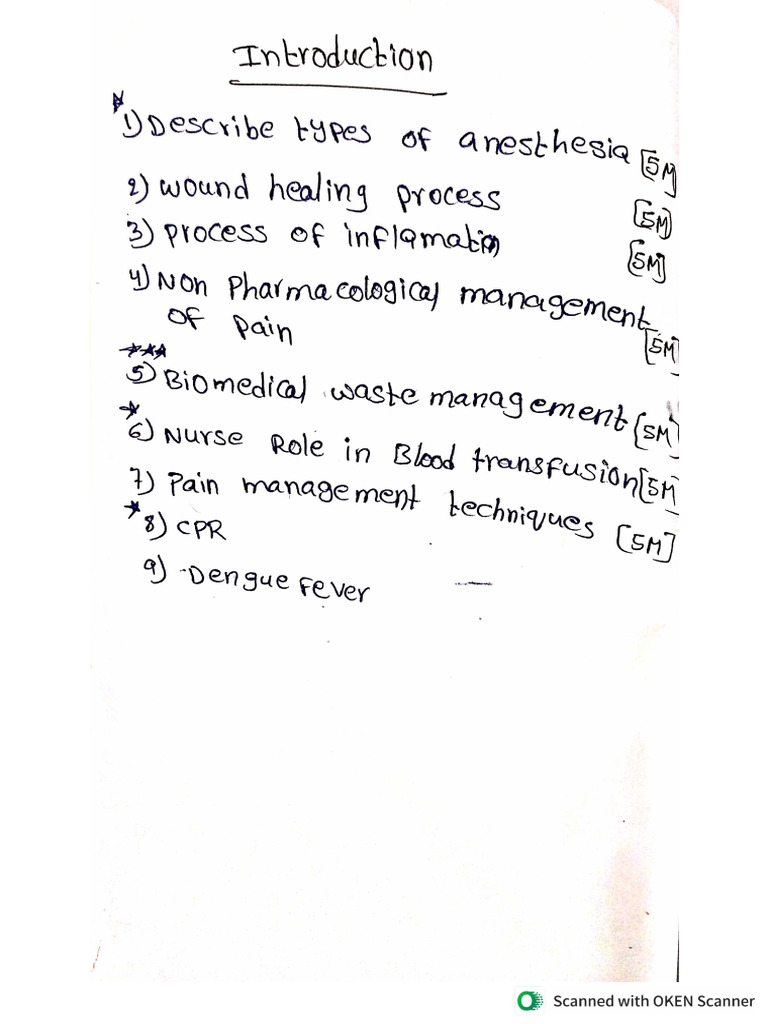 Introduction
* 1) Describe types of anesthesia [5M]
2) wound healing process [5M]
3) process of inflamation [5M]
4) Non Pharmacological management
of pain [5M]
***
5) Biomedical waste management [5M]
*
6) Nurse Role in Blood transfusion [5M]
7) Pain management techniques [5M]
* 8) CPR
9) Dengue Fever
Scanned with OKEN Scanner